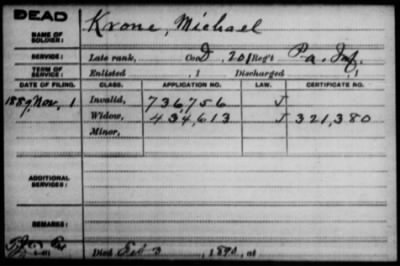 DEAD
NAME OF SOLDIER: Krone, Michael
SERVICE: Late rank, Co. D, 201 Reg't Pa. Inf.
TERM OF SERVICE: Enlisted , 1 Discharged , 1
DATE OF FILING. CLASS. APPLICATION NO. LAW. CERTIFICATE NO.
1889, Nov, 1 Invalid, 736,756 J
Widow, 434,613 J 321,380
Minor,
ADDITIONAL SERVICES:
REMARKS:
Died 3, 1890, at